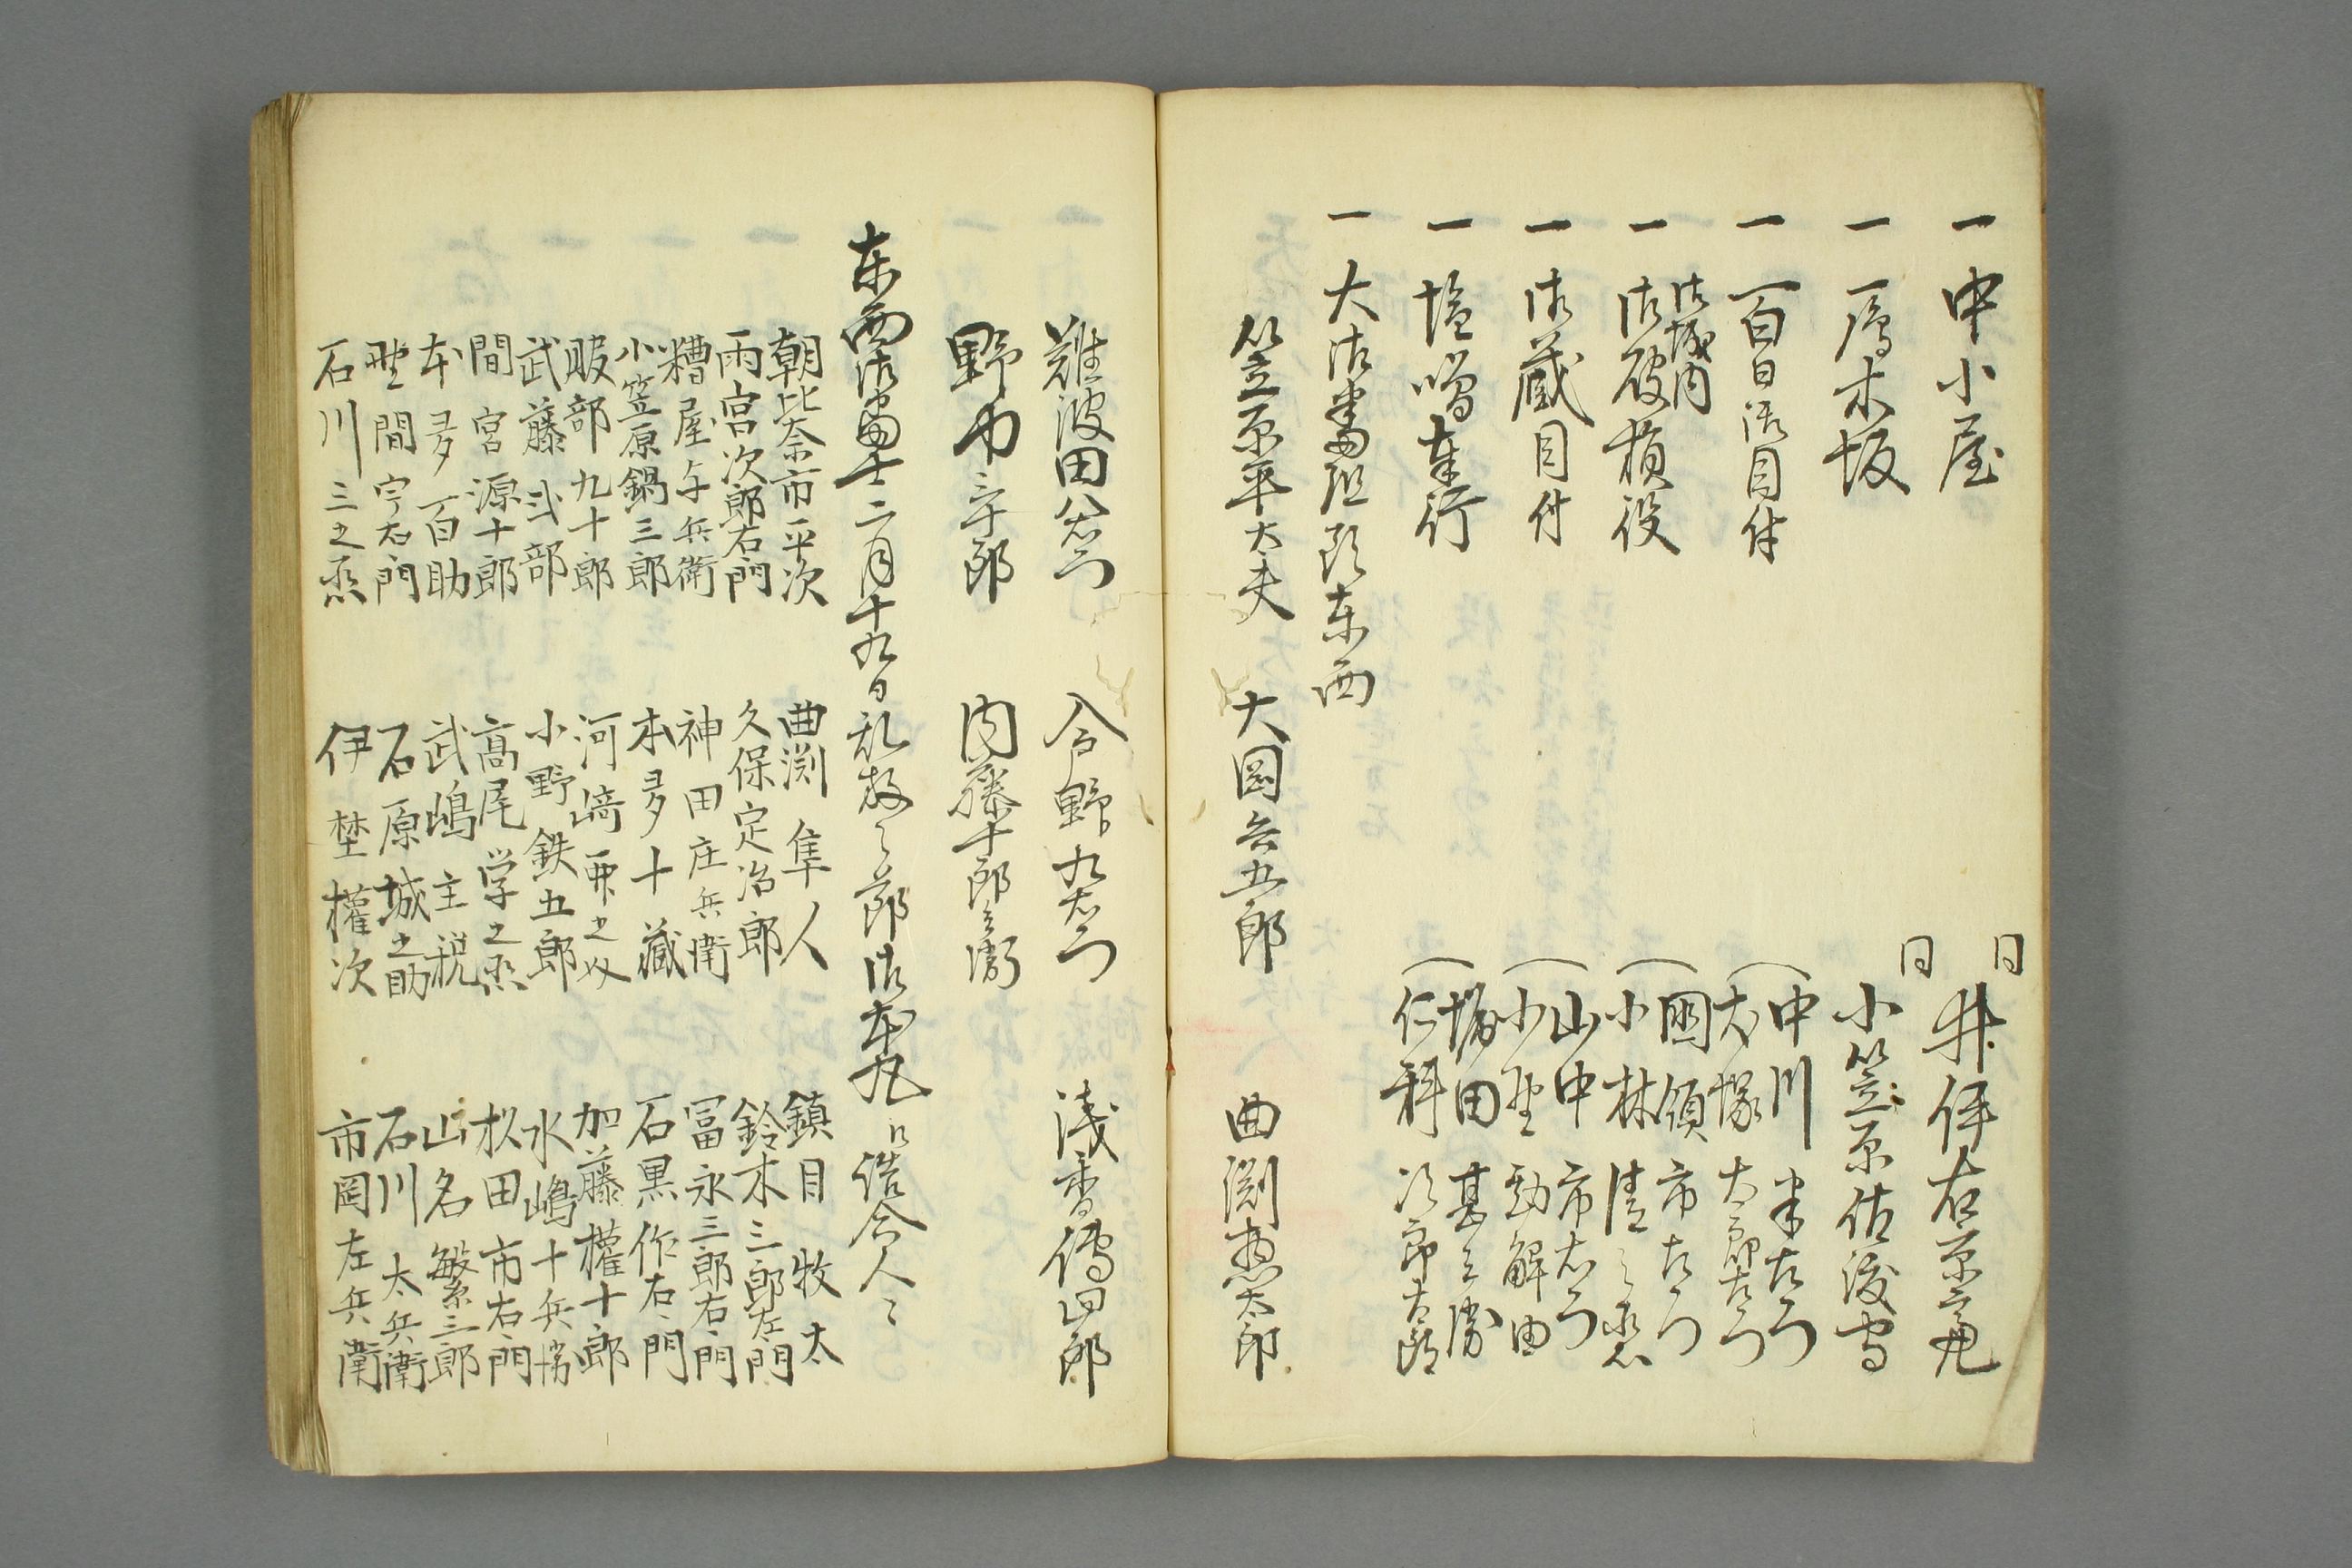 一 中小屋 同 井伊右京亮
一 雁木坂 同 小笠原佐渡守
一 百日御目付 中川半左衛門
大塚太郎左衛門
御城内
一 御破損役 國領市左衛門
小林清之丞
一 御蔵目付 山中市右衛門
小野勘解由
一 塩噌奉行 堀田甚之
仁科次郎太郎
一 大御番組頭東西
笠原平太夫 大岡兵五郎 曲渕惣太郎
難波田八右衛門 今野九右衛門 浅香傳四郎
野中三十郎 内藤十郎兵衛
東西御番士二月十九日乱放之節御本丸江詰合人々
朝比奈市平次 曲渕隼人 鎮目牧太
雨宮次郎右衛門 久保定治郎 鈴木三郎左衛門
糟屋与兵衛 神田庄兵衛 冨永三郎右衛門
小笠原鍋三郎 本多十藏 石黒作右衛門
服部九十郎 河﨑 加藤權十郎
武藤弐部 小野鉄五郎 水嶋十兵衛
間宮源十郎 髙尾学之丞 松田市右衛門
本多百助 武嶋主税 山名繁三郎
野間宇右衛門 石原城之助 石川太兵衛
石川三之丞 伊埜權次 市岡左兵衛